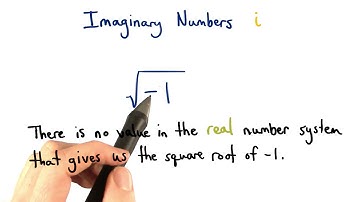 Imaginary Numbers i
√-1
There is no value in the real number system
that gives us the square root of -1.